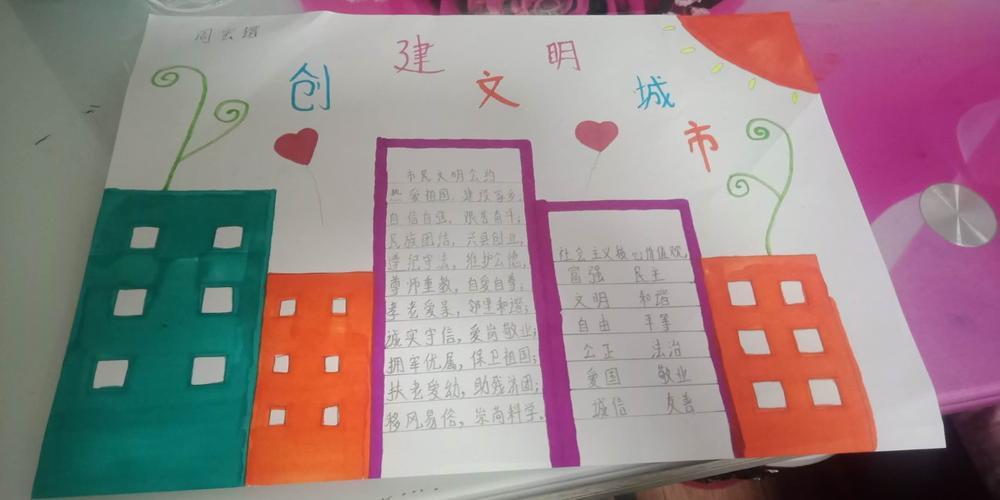 周宏
创建文明城市
市民文明公约
热爱祖国，建设家乡，
自信自强，艰苦奋斗；
民族团结，兴县创业，
遵纪守法，维护公德，
尊师重教，自爱自尊；
孝老爱亲，邻里和谐；
诚实守信，爱岗敬业；
拥军优属，保卫祖国；
扶老爱幼，助残济困；
移风易俗，崇尚科学。
社会主义核心价值观
富强 民主
文明 和谐
自由 平等
公正 法治
爱国 敬业
诚信 友善